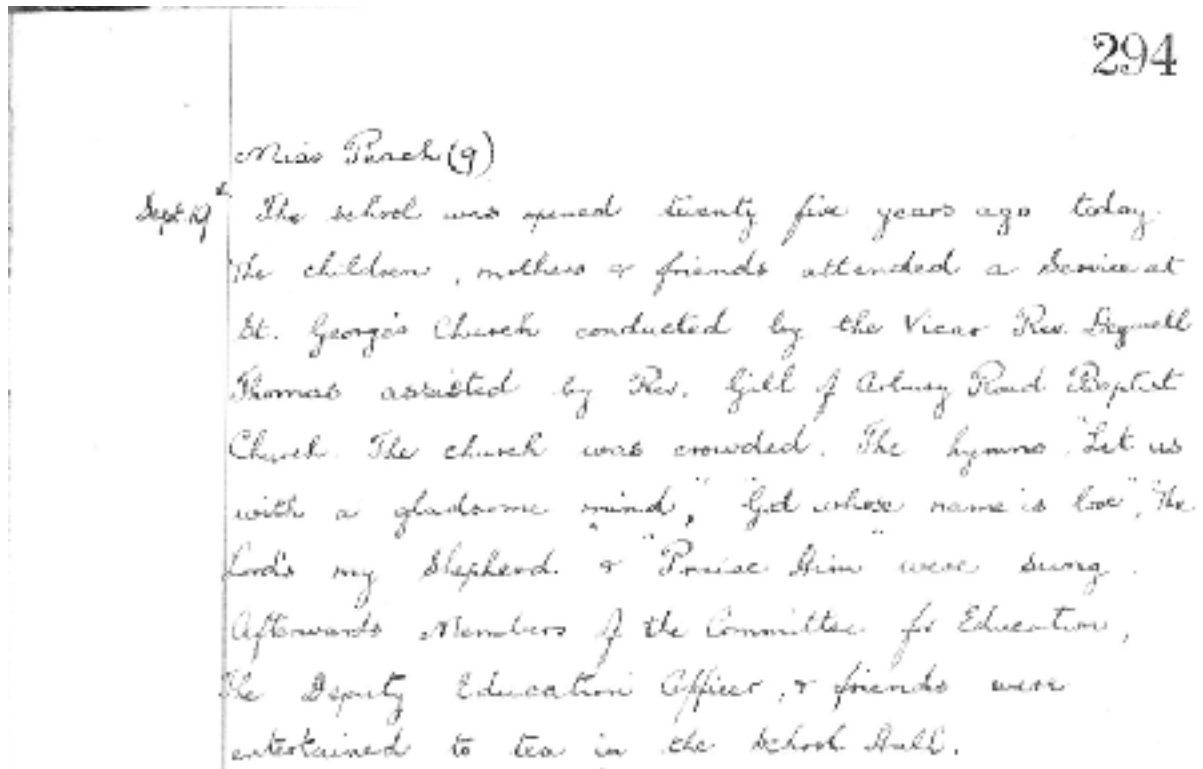 294
Miss Punch (9)
Sept 19th The school was opened twenty five years ago today.
The children, mothers & friends attended a Service at
St. George's Church conducted by the Vicar Rev.
Thomas assisted by Rev. Gill of Arbury Road Baptist
Church. The church was crowded. The hymns "Let us
with a gladsome mind", "God whose name is love", "The
Lord's my Shepherd" & "Praise Him" were sung.
Afterwards Members of the Committee for Education,
the Deputy Education Officer, & friends were
entertained to tea in the School Hall.